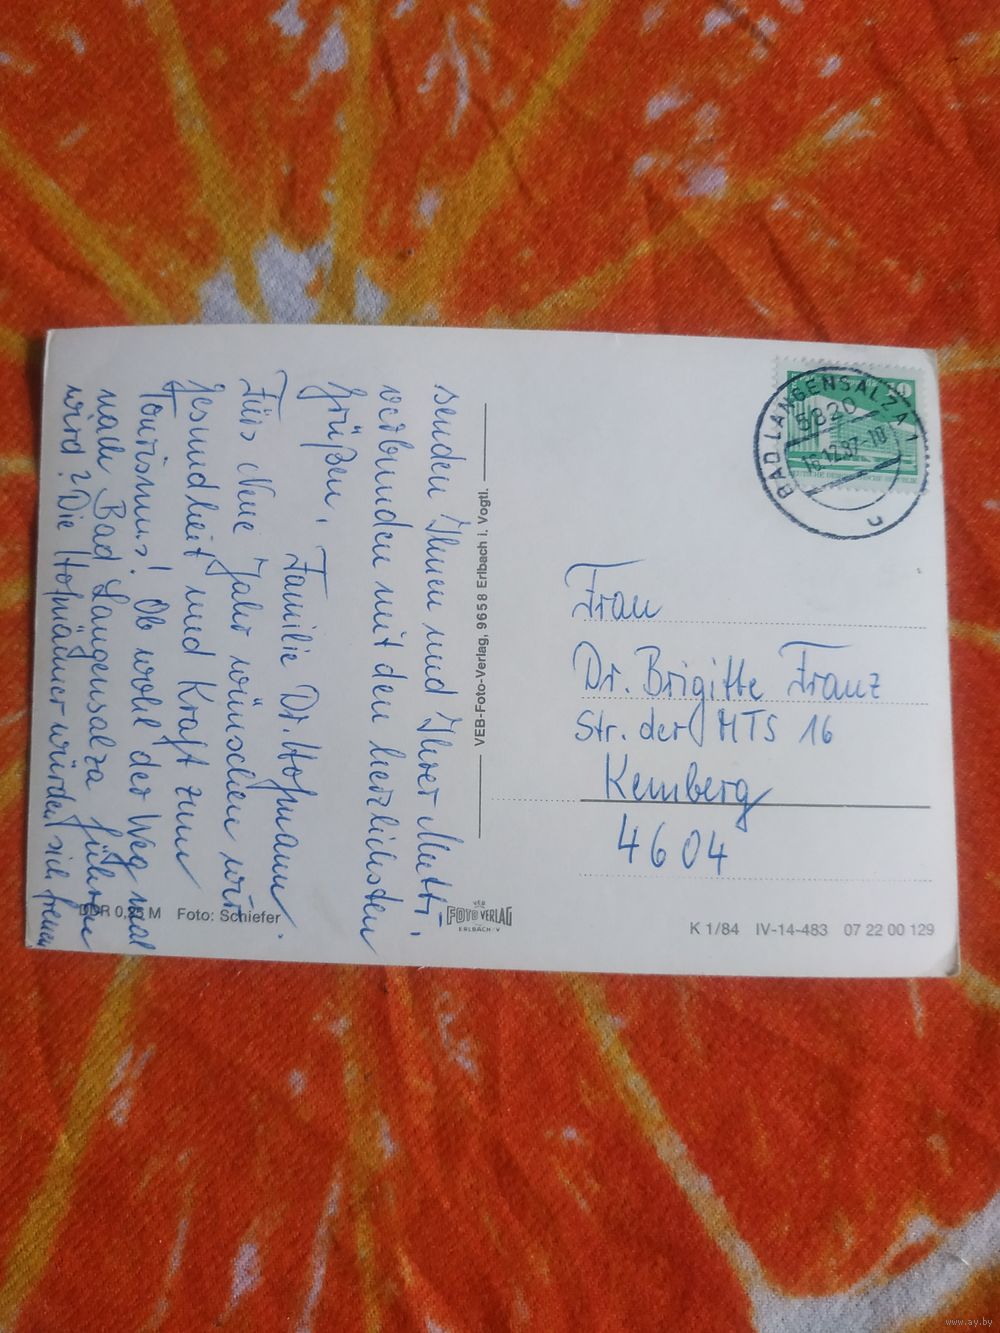 senden Ihnen und Ihrer Mutti,
verbunden mit den herzlichsten
Grüßen,
Familie Dr. Hofmann.
Fürs Neue Jahr wünschen wir
Gesundheit und Kraft zum
Tourismus! Ob wohl der Weg mal
nach Bad Langensalza führen
wird? Die Hofmänner würden sich freuen
DDR 0,25 M Foto: Schiefer
VEB-Foto-Verlag, 9658 Erlbach i. Vogtl.
VEB
FOTO VERLAG
ERLBACH/V
BAD LANGENSALZA 1
5820
16.12.87-10
U
DEUTSCHE DEMOKRATISCHE REPUBLIK
Frau
Dr. Brigitte Franz
Str. der MTS 16
Kemberg
4604
K 1/84 IV-14-483 07 22 00 129
www.ay.by